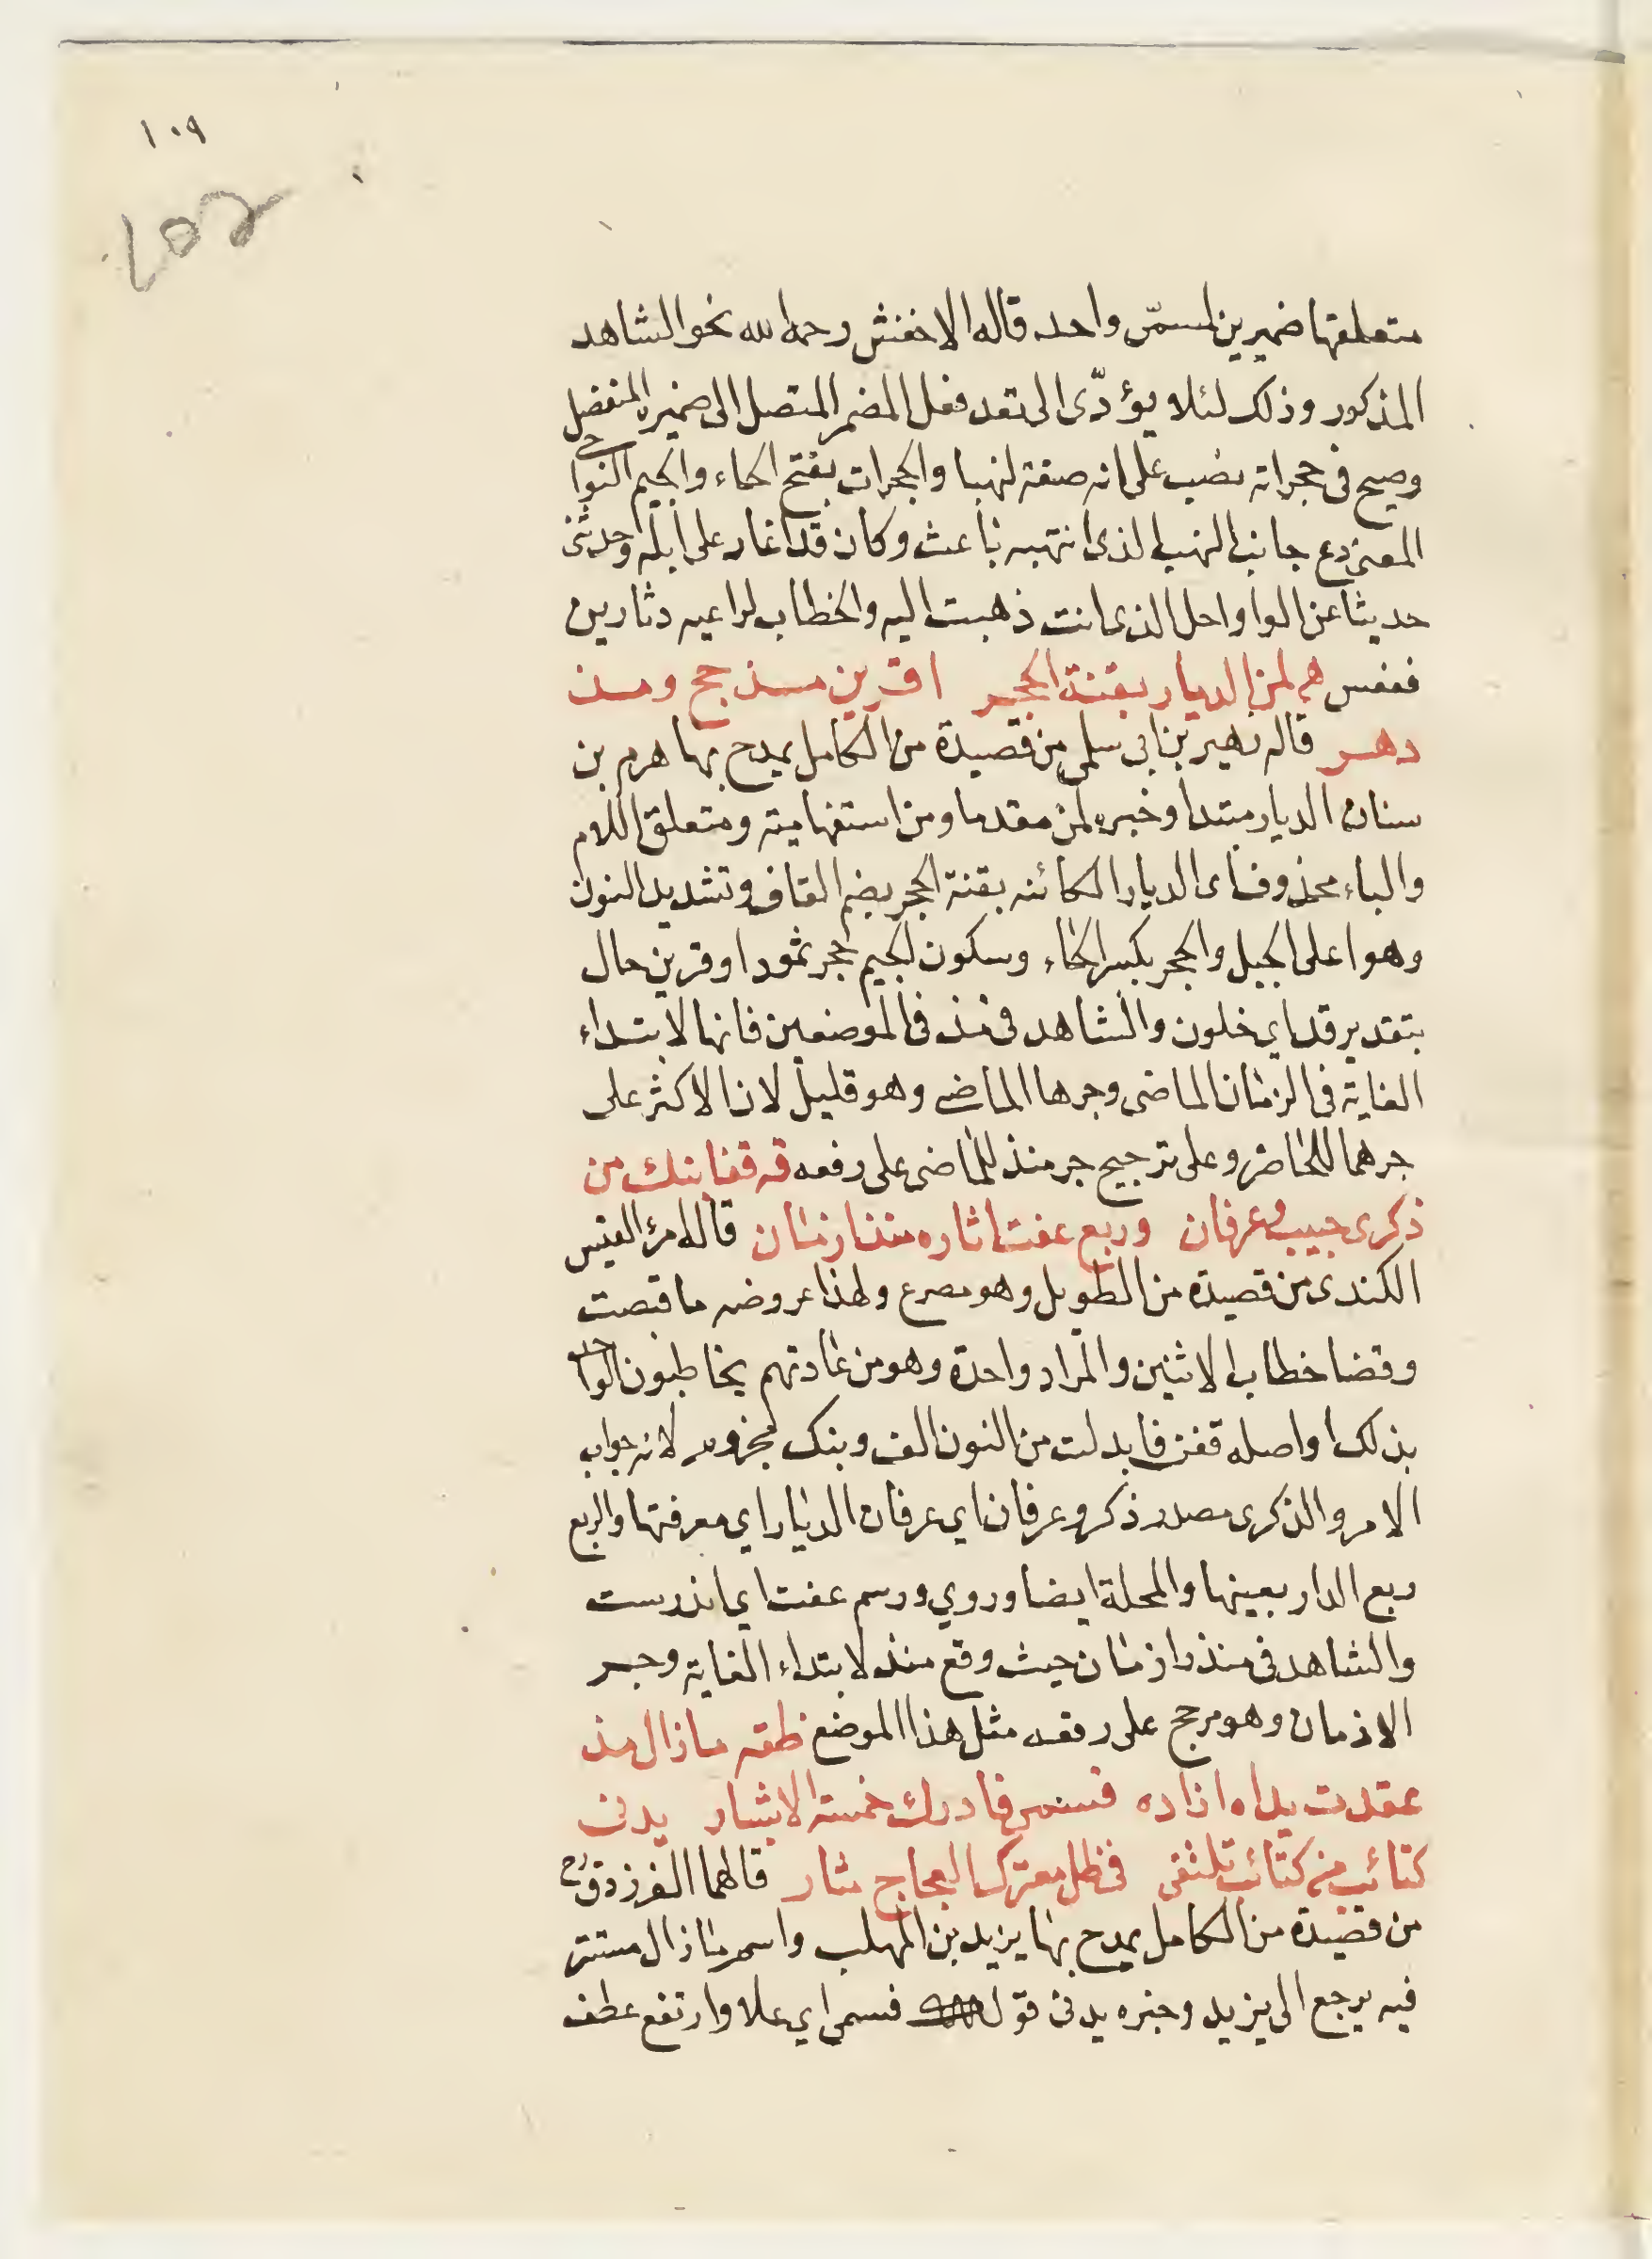 ١٠٩
متعلقها ضميرين لمسمّى واحد قاله الاخفش رحمه الله نحو الشاهد
المذكور وذلك لئلا يؤدّى الى تعد فعل المضمر المتصل الى ضميره المنفصل
وصيح فى حجراته نصب على انه صفة لنهبا والحجرات بفتح الحاء والجيم النواحى
المعنى دع جانب النهب الذى انتهبه باعث وكان قد اغار على ابله وحدثنى
حديثا عن الوا واحل الذى انت ذهبت اليه والخطاب لراعيه دثار بن
فقعس هم لمن الديار بقنة الحجر اقوين مذ حجج ومذ
دهر قاله زهير بن ابى سلمى من قصيدة من الكامل يمدح بها هرم بن
سنان الديار مبتدا وخبره لمن مقدما ومن استفهامية ومتعلق اللام
والباء محذوف اى الديار الكائنه بقنة الحجر بضم القاف وتشديد النون
وهو اعلى الجبل والحجر بكسر الحاء وسكون الجيم حجر ثمود اوقرين حال
بتقدير قد اي خلون والشاهد فى مذ فى الموضعين فانها لابتداء
الغاية فى الزمان الماضى وجرها الماضى وهو قليل لان الاكثر على
جرهما للحاضر وعلى ترجيح جر منذ للماضى على رفعه قه قفا نبك من
ذكرى حبيب وعرفان وربع عفت اثاره منذ ازمان قاله امرؤ القيس
الكندى من قصيدة من الطويل وهو مصرع ولهذا عروضه ما قبضت
وقفا خطاب الاثنين والمراد واحدة وهو من عادتهم يخاطبون الواحد
بذلك او اصله قفن فابدلت من النون الف ونبك مجزوم لانه جواب
الامر والذكرى مصدر ذكر وعرفان اي عرفان الديار اي معرفتها والربع
ربع الدار بعينها والمحلة ايضا وروي ورسم عفت اي اندرست
والشاهد فى منذ ازمان حيث وقع منذ لابتداء الغاية وجر
الازمان وهو مرجح على رفعه مثل هذا الموضع ظقه ما زال مذ
عقدت يداه ازاره فسمى فادرك خمسة الاشبار يدنى
كتائب من كتائب تلتقى فى ظل معترك العجاج مثار قالهما الفرزدق
من قصيدة من الكامل يمدح بها يزيد بن المهلب واسم ما زال مستتر
فيه يرجع الى يزيد وخبره يدنى قوله فسمى اي علا وارتفع عطف